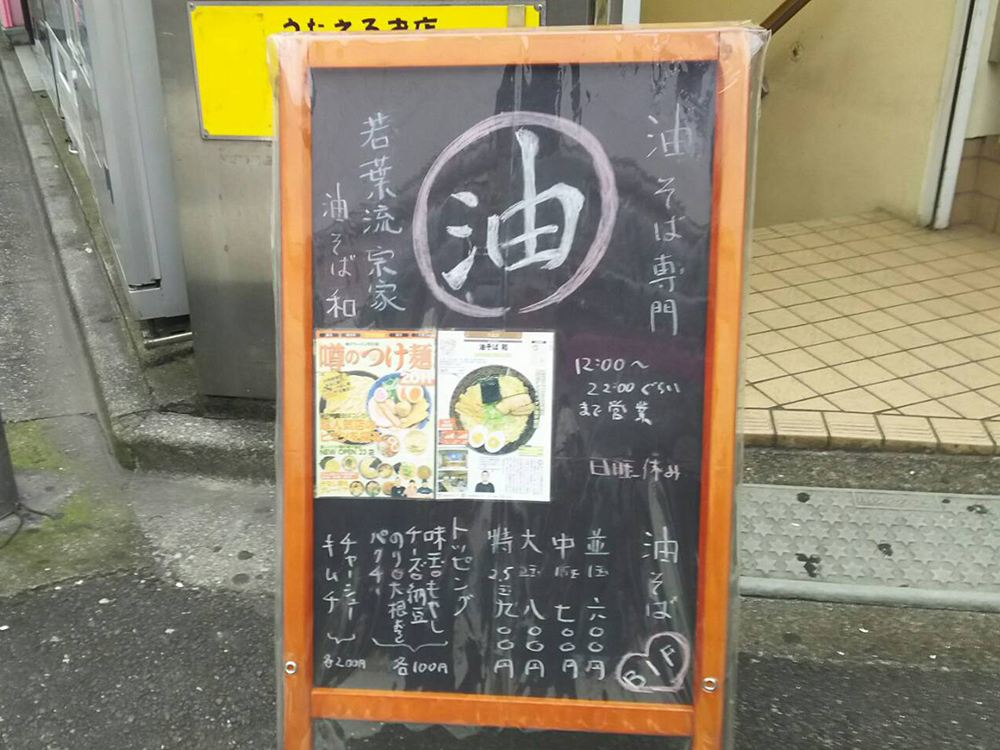 油そば専門
油
若葉流宗家
油そば 和
噂のつけ麺
2014
NEW OPEN
油そば 和
12:00〜
22:00ぐらい
まで営業
日曜休み
油そば
B1F
並 1玉 六〇〇円
中 七〇〇円
大 2玉 八〇〇円
特 2.5玉 九〇〇円
トッピング
味玉 もやし
チーズ 納豆
のり 大根
パクチー
各100円
チャーシュー
キムチ
各200円